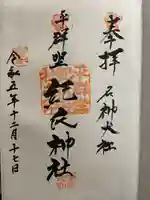 奉拝
石神大社
平群坐
紀氏神社
令和五年十二月十七日